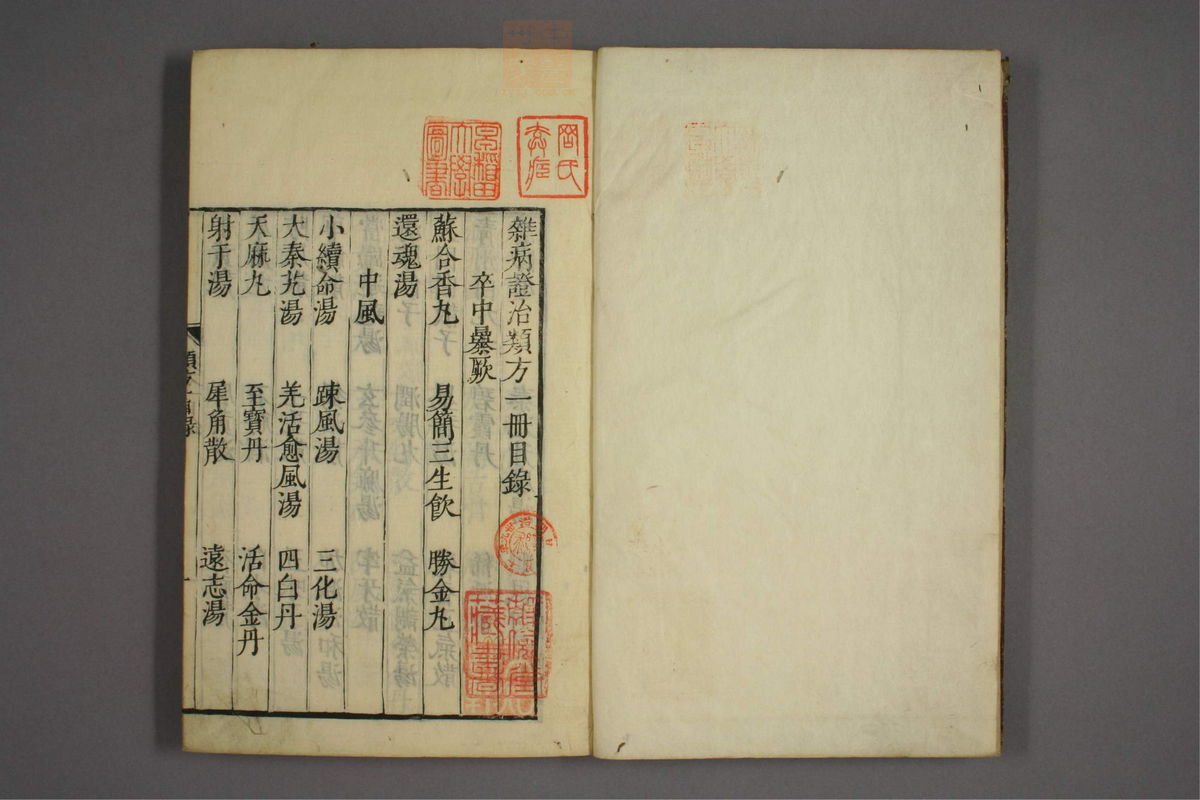 雜病證治類方一冊目錄
卒中暴厥
蘇合香丸 易簡三生飲 勝金丸
還魂湯
中風
小續命湯 疎風湯 三化湯
大秦艽湯 羌活愈風湯 四白丹
天麻丸 至寶丹 活命金丹
射干湯 犀角散 遠志湯
早稲田大學圖書
藏書